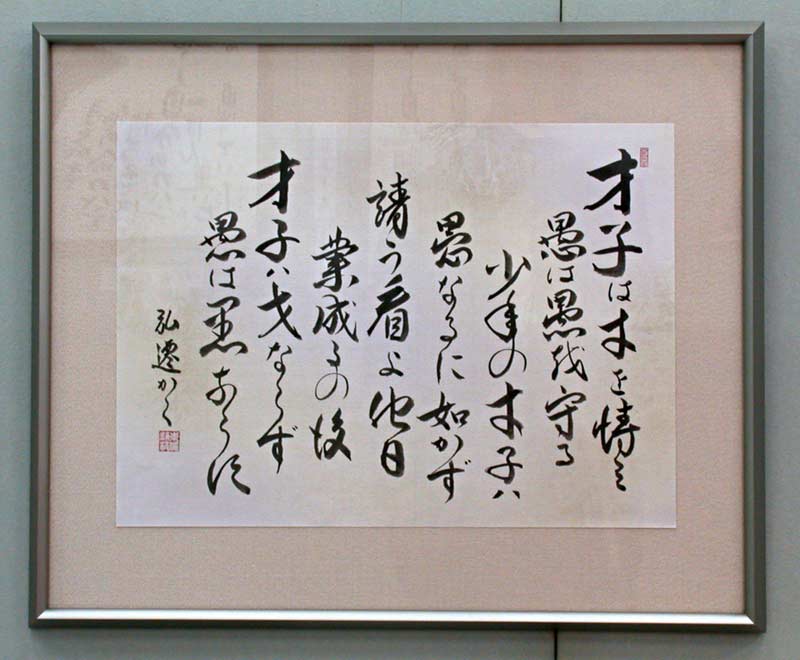 才子は才を恃み
愚は愚を守る
少年の才子ハ
愚なるに如かず
請う看よ他日
業成るの後
才子ハ才ならず
愚は愚ならず
弘遷かく